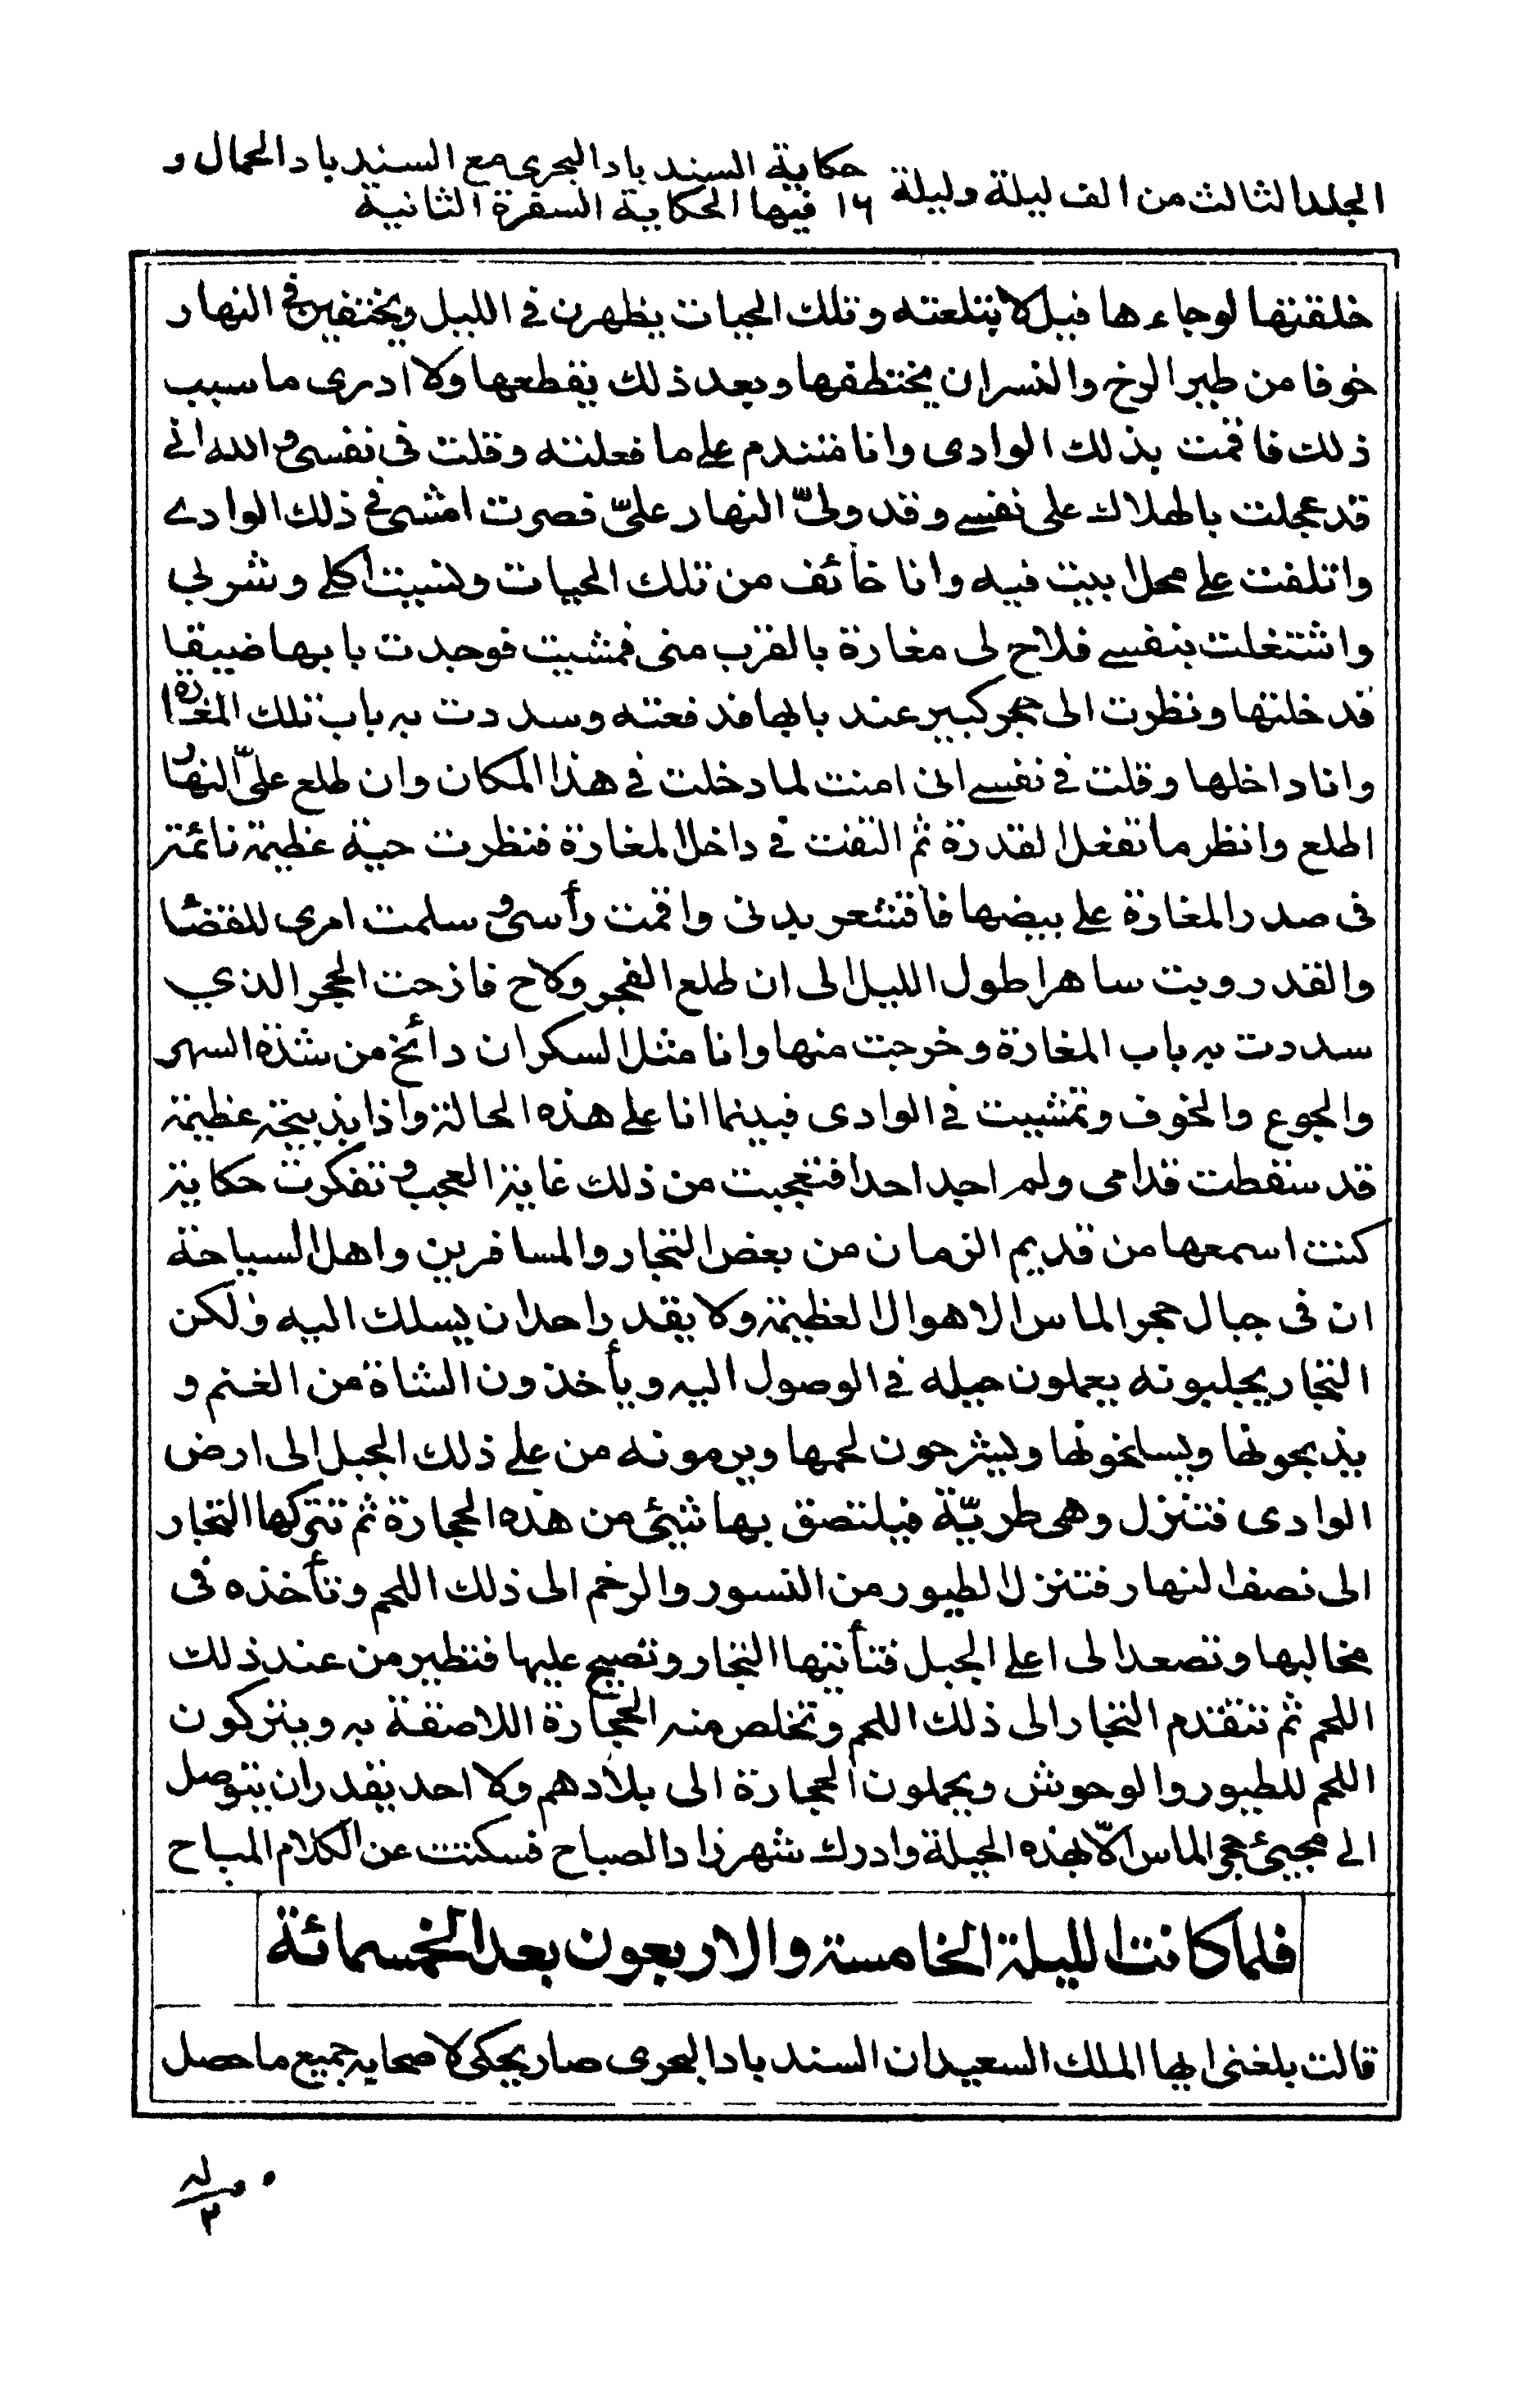 المجلد الثالث من الف ليلة وليلة
حكاية السند باد البحرى مع السند باد الحمال و
١٦ فيها الحكاية السفرة الثانية
خلقتها لو جاءها فيل لابتلعته وتلك الحيات يظهرن فى الليل ويختفين فى النهار
خوفا من طير الرخ والنسران يختطفها وبعد ذلك يقطعها ولا ادرى ما سبب
ذلك فاقمت بذلك الوادى وانا متندم على ما فعلته وقلت فى نفسى والله انى
قد عجلت بالهلاك على نفسى وقد ولىّ النهار علىّ فصرت امشى فى ذلك الوادى
واتلفت على محل ابيت فيه وانا خائف من تلك الحيات ونسيت اكلى وشربى
واشتغلت بنفسى فلاح لى مغارة بالقرب منى فمشيت فوجدت بابها ضيقا
فدخلتها ونظرت الى حجر كبير عند بابها فدفعته وسددت به باب تلك المغارة
وانا داخلها وقلت فى نفسى انى امنت لما دخلت فى هذا المكان وان طلع علىّ النهار
اطلع وانظر ما تفعل القدرة ثم التفت فى داخل المغارة فنظرت حية عظيمة نائمة
فى صدر المغارة على بيضها فاقشعر بدنى واقمت رأسى وسلمت امرى للقضاء
والقدر وبت ساهرا طول الليل الى ان طلع الفجر ولاح فازحت الحجر الذي
سددت به باب المغارة وخرجت منها وانا مثل السكران دائخ من شدة السهر
والجوع والخوف وتمشيت فى الوادى فبينما انا على هذه الحالة واذا بذبيحة عظيمة
قد سقطت قدامى ولم اجد احدا فتعجبت من ذلك غاية العجب وتفكرت حكاية
كنت اسمعها من قديم الزمان من بعض التجار والمسافرين واهل السياحة
ان فى جبال حجر الماس الاهوال العظيمة ولا يقدر احد ان يسلك اليه ولكن
التجار يجلبونه يعملون حيلة فى الوصول اليه ويأخذون الشاة من الغنم و
يذبحونها ويسلخونها ويشرحون لحمها ويرمونه من على ذلك الجبل الى ارض
الوادى فتنزل وهى طريّة فيلتصق بها شيئ من هذه الحجارة ثم تتركها التجار
الى نصف النهار فتنزل الطيور من النسور والرخم الى ذلك اللحم وتأخذه فى
مخالبها وتصعد الى اعلى الجبل فتأتيها التجار وتصيح عليها فتطير من عند ذلك
اللحم ثم تتقدم التجار الى ذلك اللحم وتخلص منه الحجارة اللاصقة به ويتركون
اللحم للطيور والوحوش ويحملون الحجارة الى بلادهم ولا احد يقدر ان يتوصل
الى مجيئ حجر الماس الّا بهذه الحيلة وادرك شهرزاد الصباح فسكتت عن الكلام المباح
فلما كانت الليلة الخامسة والاربعون بعد الخمسمائة
قالت بلغنى ايها الملك السعيد ان السند باد البحرى صار يحكى لاصحابه جميع ما حصل